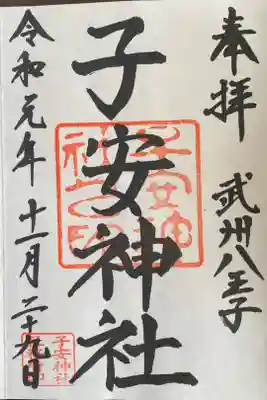 奉拝
武州八王子
子安神社
令和元年十一月二十九日
子安神社